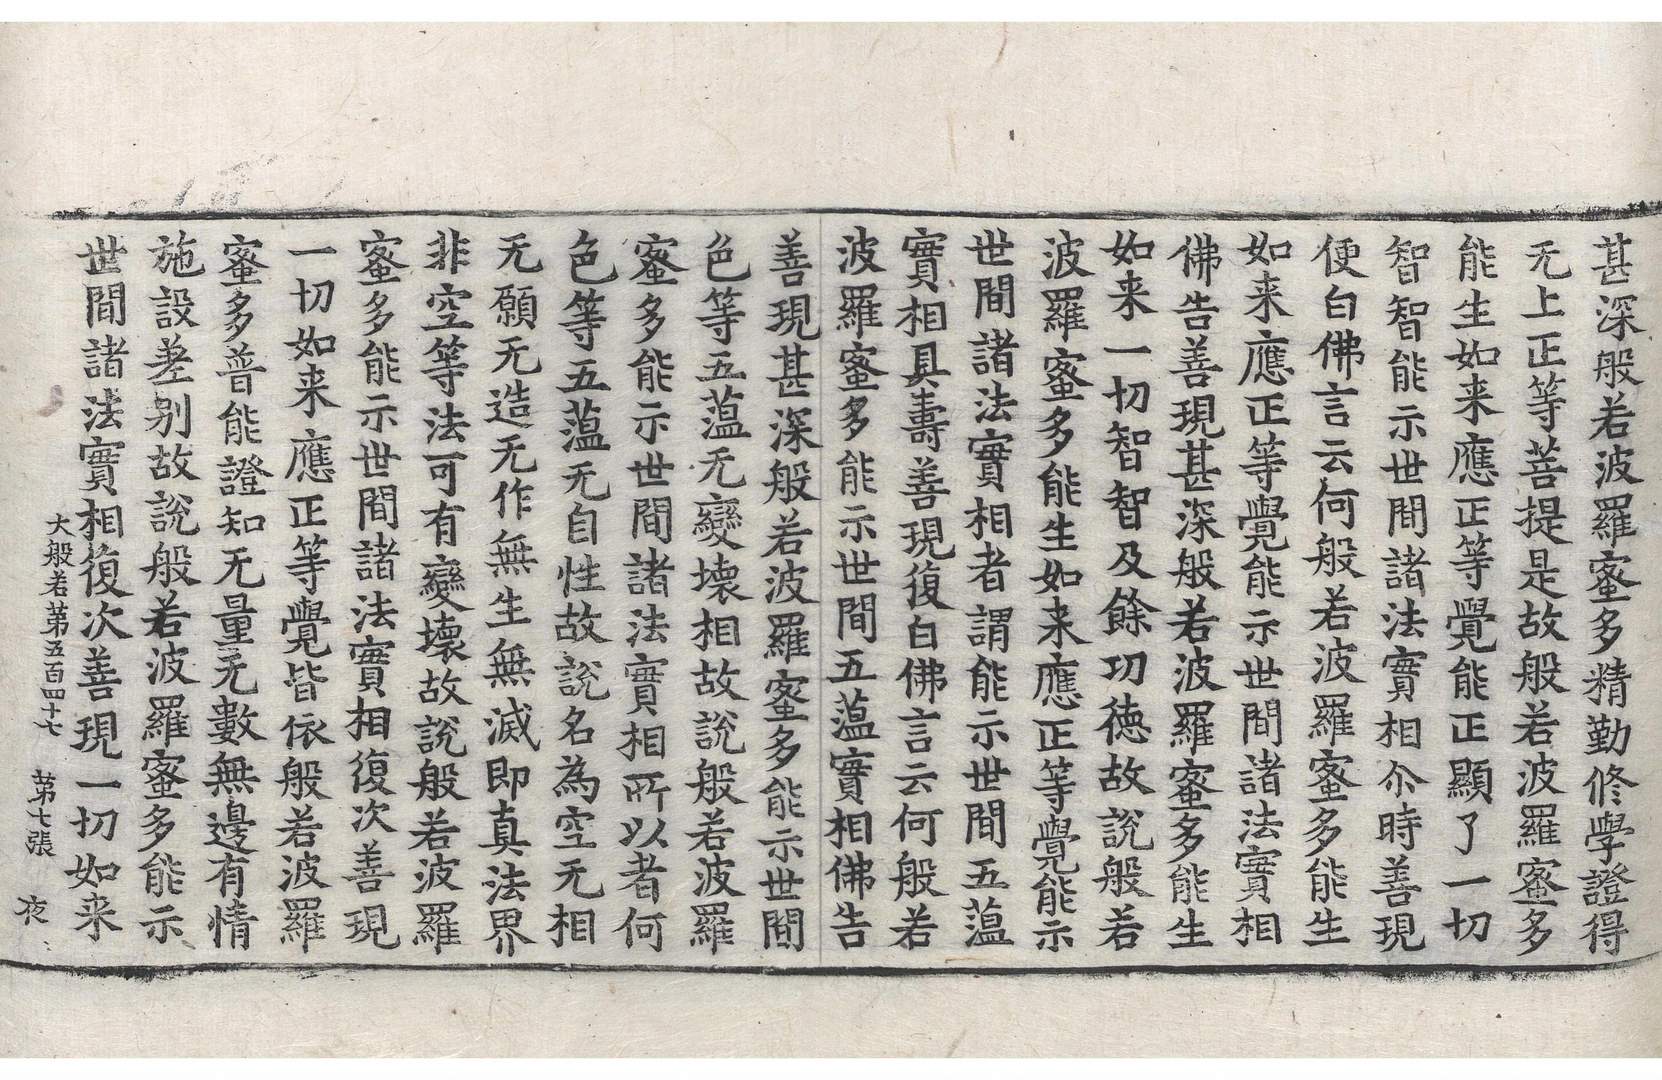 甚深般若波羅蜜多精勤修學證得
无上正等菩提是故般若波羅蜜多
能生如来應正等覺能正顯了一切
智智能示世間諸法實相尒時善現
便白佛言云何般若波羅蜜多能生
如来應正等覺能示世間諸法實相
佛告善現甚深般若波羅蜜多能生
如来一切智智及餘功徳故說般若
波羅蜜多能生如来應正等覺能示
世間諸法實相者謂能示世間五蕴
實相具壽善現復白佛言云何般若
波羅蜜多能示世間五蕴實相佛告
善現甚深般若波羅蜜多能示世間
色等五蕴无變壞相故說般若波羅
蜜多能示世間諸法實相所以者何
色等五蕴无自性故說名為空无相
无願无造无作無生無滅即真法界
非空等法可有變壞故說般若波羅
蜜多能示世間諸法實相復次善現
一切如来應正等覺皆依般若波羅
蜜多普能證知无量无數無邊有情
施設差别故說般若波羅蜜多能示
世間諸法實相復次善現一切如来
大般若第五百四十七　第七張　夜